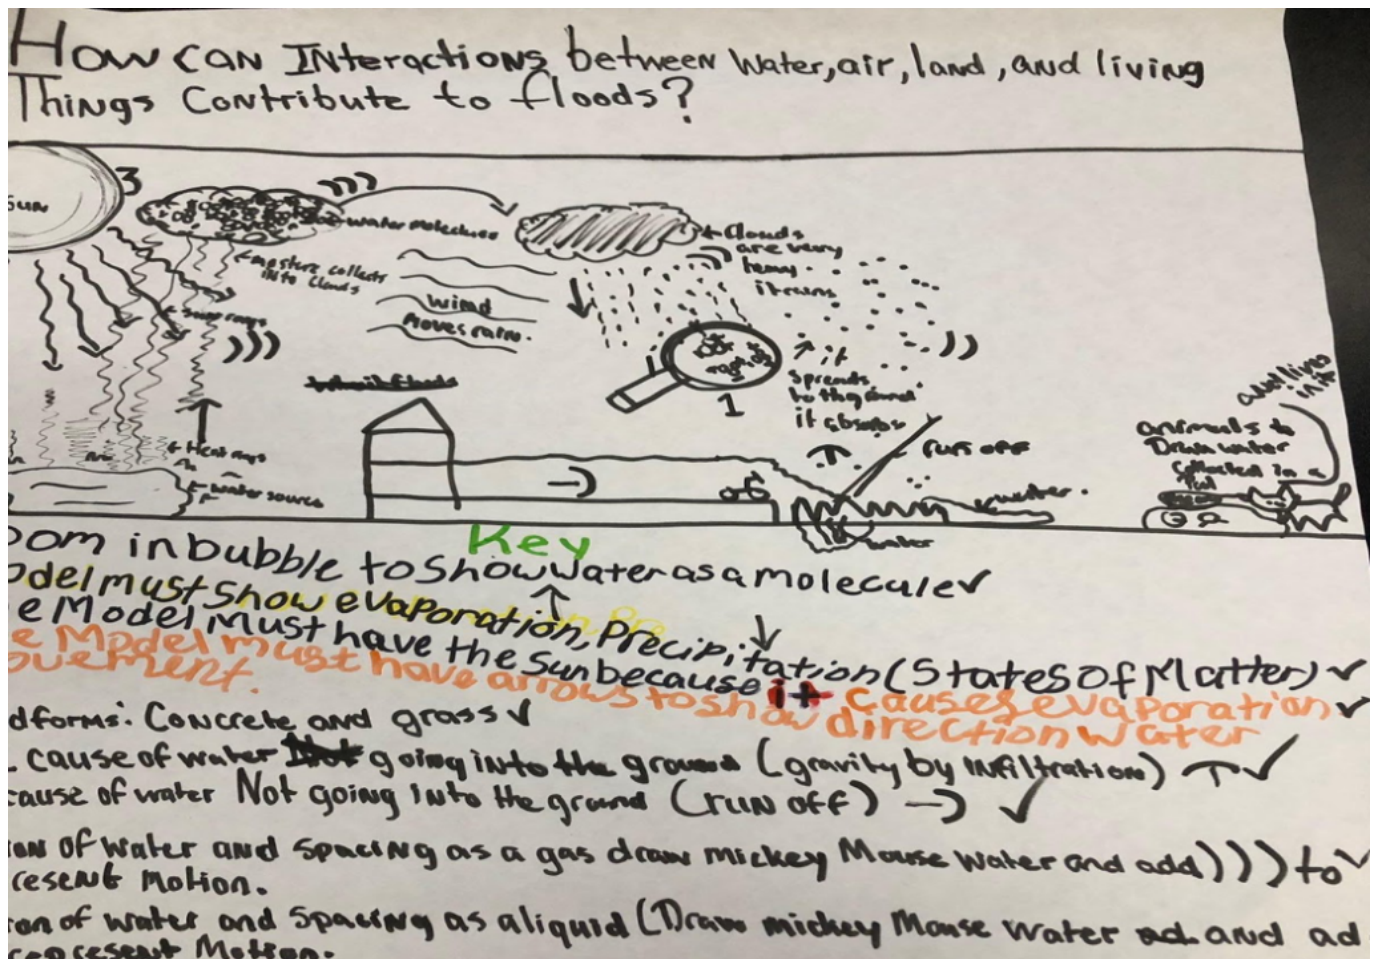 How can Interactions between Water, air, land, and living
Things Contribute to floods?
Sun
3
water molecules
moisture collects
into clouds
Wind
Moves rain.
Clouds
are very
heavy.
it rains
it
spreads
to the ground
it absorbs
1
Heat rays
water source
run off
water.
water
animals to
Drain water
Collected in a
and lives
in it
Key
oom in bubble to show water as a molecule ✓
odel must show evaporation, Precipitation (States of Matter) ✓
e Model Must have the sun because it causes evaporation ✓
e Model must have arrows to show direction water
ovement.
dforms: Concrete and grass ✓
cause of water going into the ground (gravity by infiltration) ↑ ✓
cause of water Not going into the ground (run off) → ✓
ion of water and spacing as a gas draw mickey Mouse water and add ))) to ✓
resent Motion.
ion of water and spacing as a liquid (Draw mickey Mouse water and ad
represent Motion.